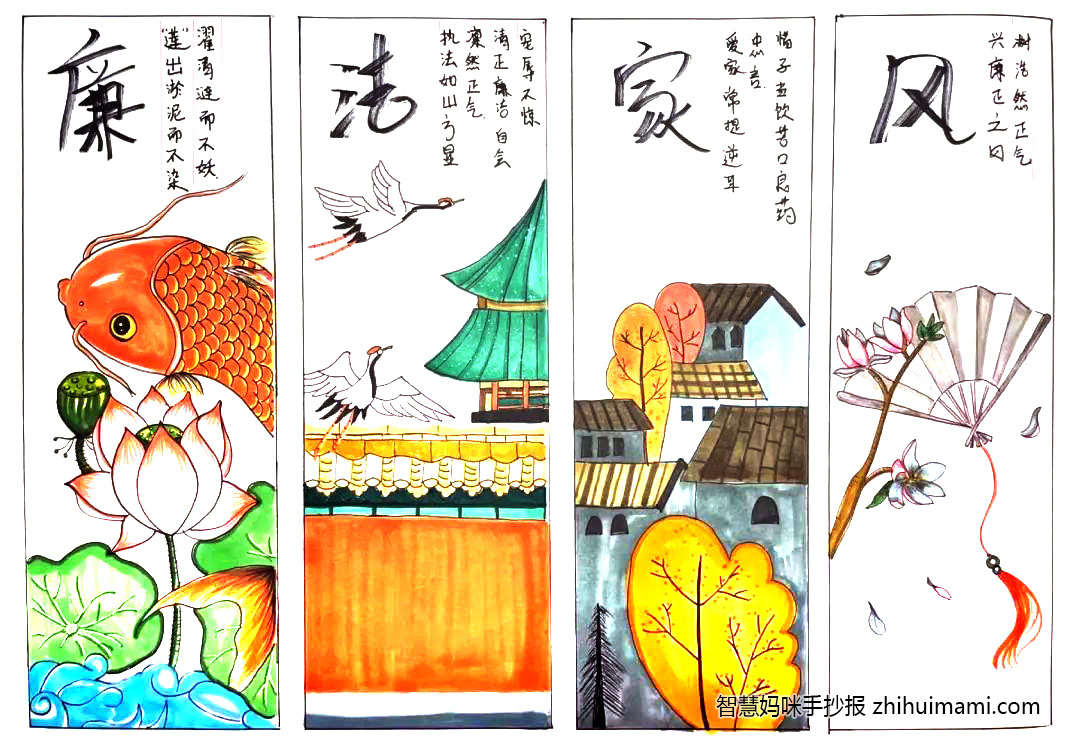 廉
“莲”出淤泥而不染
濯清涟而不妖.
法
执法如山方显
凛然正气.
清正廉洁自会
宠辱不惊
家
爱家常提逆耳
忠言.
子 饮苦口良药
风
兴廉正之风
树浩然正气
智慧妈咪手抄报 zhihuimami.com